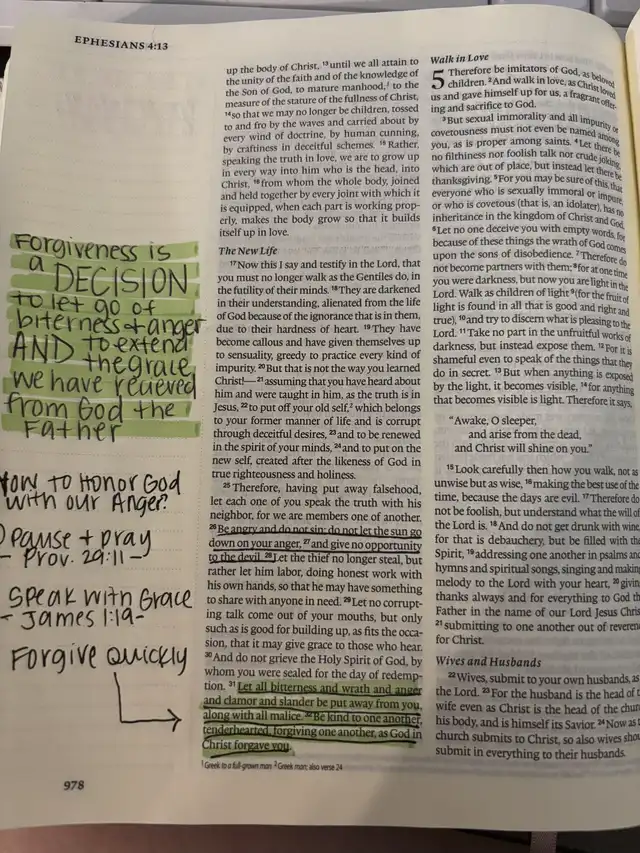 EPHESIANS 4:13
Forgiveness is
a DECISION
to let go of
biterness + anger
AND to extend
the grace
we have recieved
from God the
Father
How to Honor God
with our Anger?
pause + pray
- Prov. 29:11 -
Speak with Grace
- James 1:19 -
Forgive Quickly
978
up the body of Christ, 13 until we all attain to
the unity of the faith and of the knowledge of
the Son of God, to mature manhood,1 to the
measure of the stature of the fullness of Christ,
14 so that we may no longer be children, tossed
to and fro by the waves and carried about by
every wind of doctrine, by human cunning,
by craftiness in deceitful schemes. 15 Rather,
speaking the truth in love, we are to grow up
in every way into him who is the head, into
Christ, 16 from whom the whole body, joined
and held together by every joint with which it
is equipped, when each part is working prop-
erly, makes the body grow so that it builds
itself up in love.
The New Life
17 Now this I say and testify in the Lord, that
you must no longer walk as the Gentiles do, in
the futility of their minds. 18 They are darkened
in their understanding, alienated from the life
of God because of the ignorance that is in them,
due to their hardness of heart. 19 They have
become callous and have given themselves up
to sensuality, greedy to practice every kind of
impurity. 20 But that is not the way you learned
Christ!— 21 assuming that you have heard about
him and were taught in him, as the truth is in
Jesus, 22 to put off your old self,2 which belongs
to your former manner of life and is corrupt
through deceitful desires, 23 and to be renewed
in the spirit of your minds, 24 and to put on the
new self, created after the likeness of God in
true righteousness and holiness.
25 Therefore, having put away falsehood,
let each one of you speak the truth with his
neighbor, for we are members one of another.
26 Be angry and do not sin; do not let the sun go
down on your anger, 27 and give no opportunity
to the devil. 28 Let the thief no longer steal, but
rather let him labor, doing honest work with
his own hands, so that he may have something
to share with anyone in need. 29 Let no corrupt-
ing talk come out of your mouths, but only
such as is good for building up, as fits the occa-
sion, that it may give grace to those who hear.
30 And do not grieve the Holy Spirit of God, by
whom you were sealed for the day of redemp-
tion. 31 Let all bitterness and wrath and anger
and clamor and slander be put away from you,
along with all malice. 32 Be kind to one another,
tenderhearted, forgiving one another, as God in
Christ forgave you.
1 Greek to a full-grown man 2 Greek man; also verse 24
Walk in Love
5 Therefore be imitators of God, as beloved
children. 2 And walk in love, as Christ loved
us and gave himself up for us, a fragrant offer-
ing and sacrifice to God.
3 But sexual immorality and all impurity or
covetousness must not even be named among
you, as is proper among saints. 4 Let there be
no filthiness nor foolish talk nor crude joking,
which are out of place, but instead let there be
thanksgiving. 5 For you may be sure of this, that
everyone who is sexually immoral or impure,
or who is covetous (that is, an idolater), has no
inheritance in the kingdom of Christ and God.
6 Let no one deceive you with empty words, for
because of these things the wrath of God comes
upon the sons of disobedience. 7 Therefore do
not become partners with them; 8 for at one time
you were darkness, but now you are light in the
Lord. Walk as children of light 9 (for the fruit of
light is found in all that is good and right and
true), 10 and try to discern what is pleasing to the
Lord. 11 Take no part in the unfruitful works of
darkness, but instead expose them. 12 For it is
shameful even to speak of the things that they
do in secret. 13 But when anything is exposed
by the light, it becomes visible, 14 for anything
that becomes visible is light. Therefore it says,
“Awake, O sleeper,
and arise from the dead,
and Christ will shine on you.”
15 Look carefully then how you walk, not as
unwise but as wise, 16 making the best use of the
time, because the days are evil. 17 Therefore do
not be foolish, but understand what the will of
the Lord is. 18 And do not get drunk with wine,
for that is debauchery, but be filled with the
Spirit, 19 addressing one another in psalms and
hymns and spiritual songs, singing and making
melody to the Lord with your heart, 20 giving
thanks always and for everything to God the
Father in the name of our Lord Jesus Chris
21 submitting to one another out of reveren
for Christ.
Wives and Husbands
22 Wives, submit to your own husbands, as
the Lord. 23 For the husband is the head of t
wife even as Christ is the head of the chur
his body, and is himself its Savior. 24 Now as t
church submits to Christ, so also wives shou
submit in everything to their husbands.